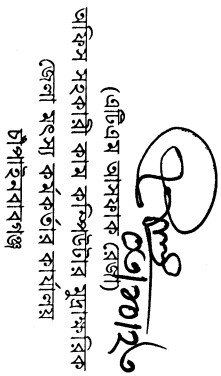 (এটিএম আসফাক রেজা)
অফিস সহকারী কাম কম্পিউটার মুদ্রাক্ষরিক
জেলা মৎস্য কর্মকর্তার কার্যালয়
চাঁপাইনবাবগঞ্জ